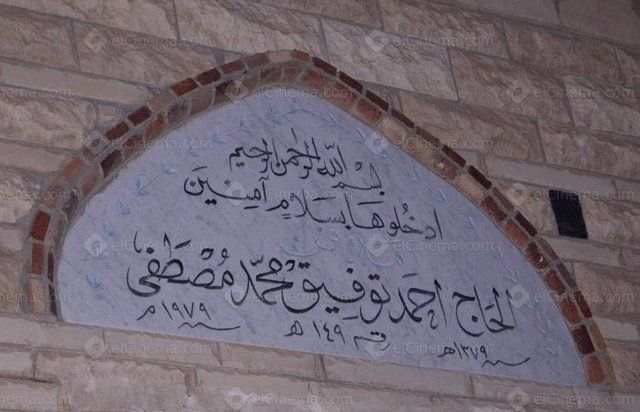 بسم الله الرحمن الرحيم
ادخلوها بسلام آمنين
الحاج احمد توفيق محمد مصطفى
سنة ١٣٧٩هـ رقم ١٤٩ سنة ١٩٧٩م
elCinema.com